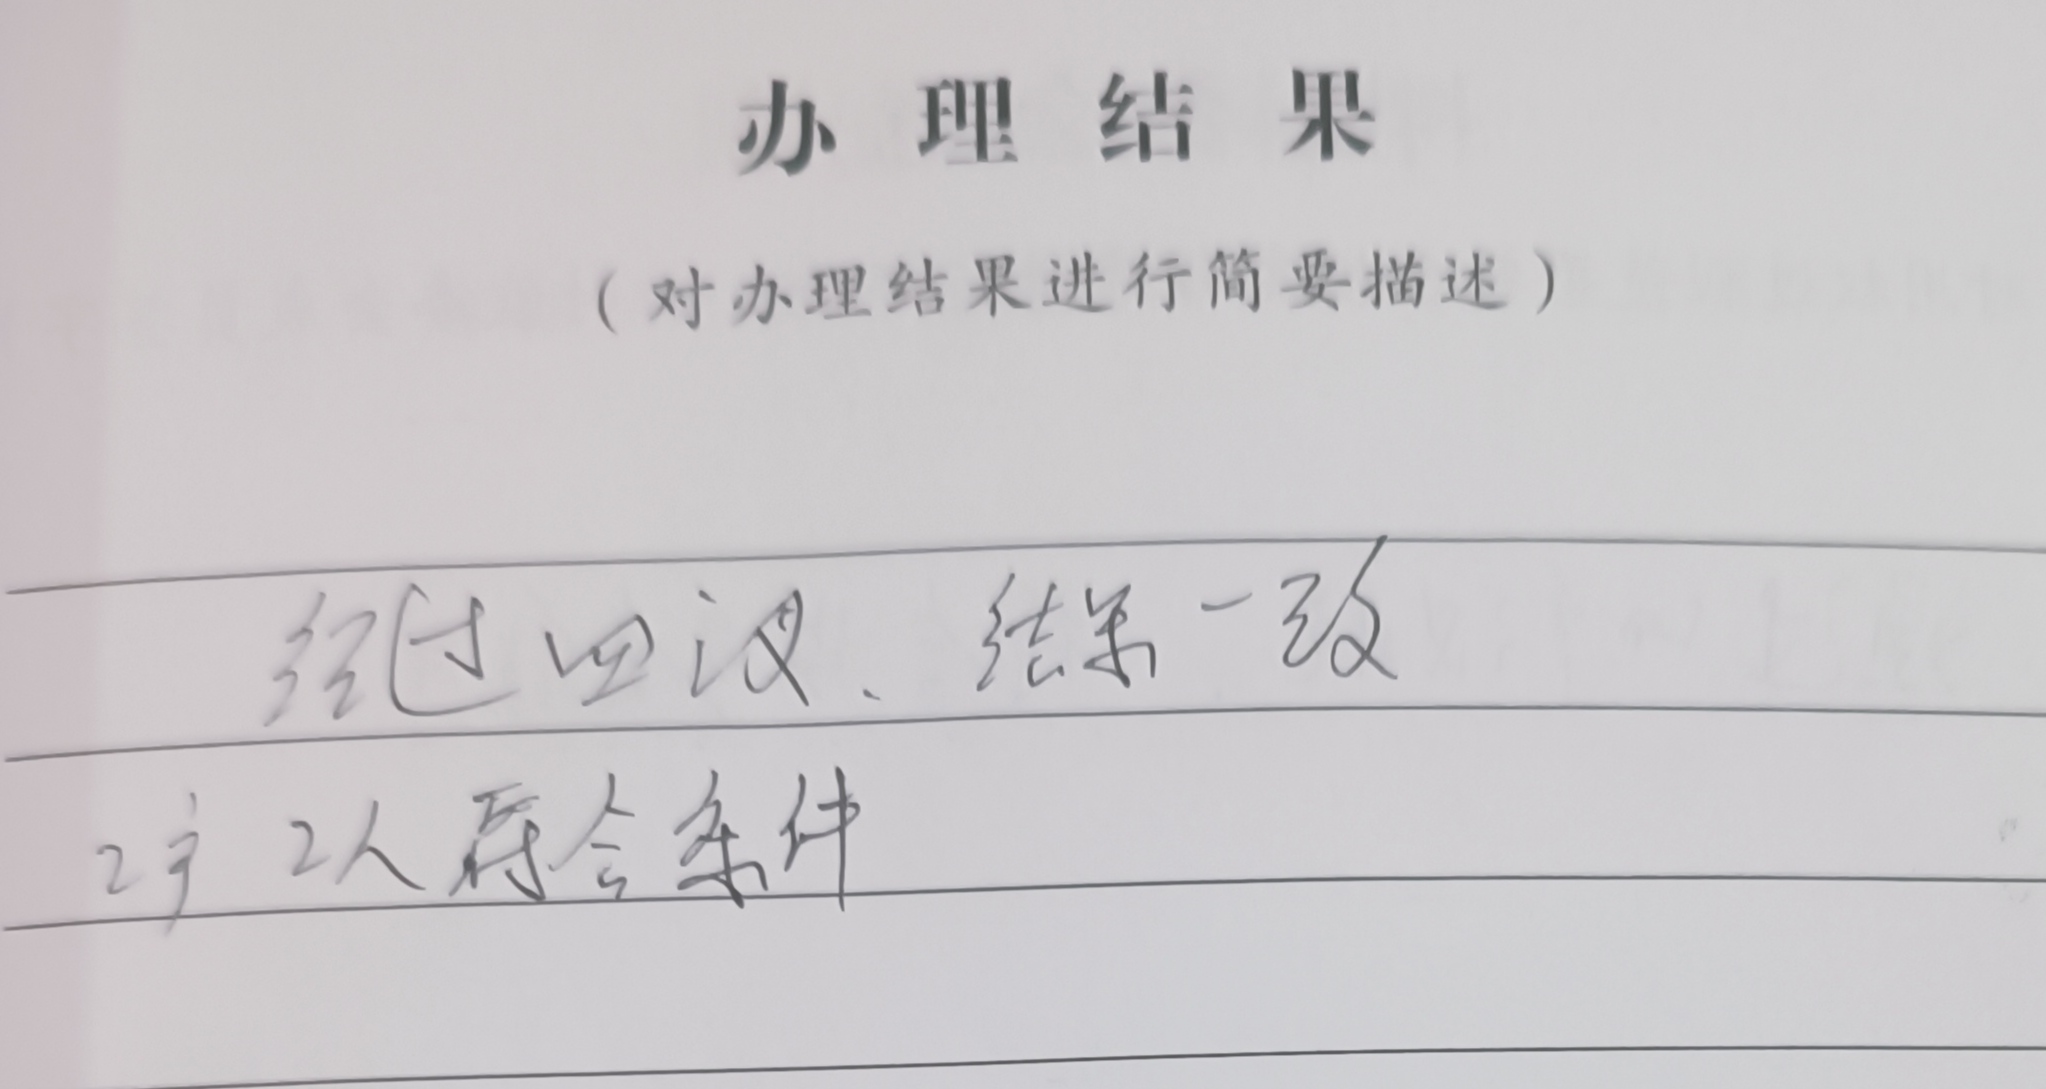 办理结果
(对办理结果进行简要描述)
经过四议、结果一致
2户2人符合条件